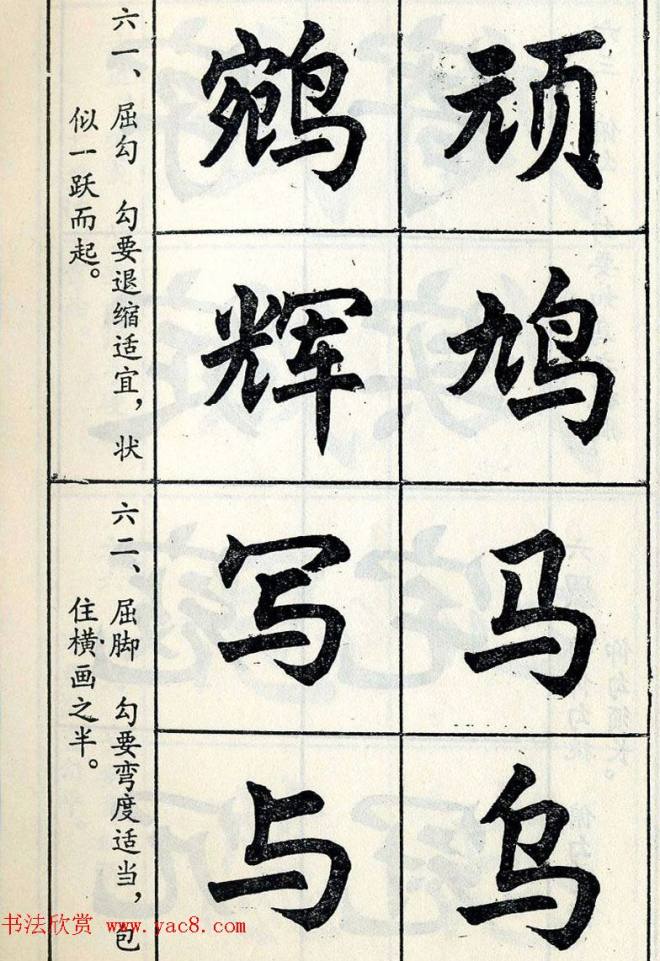 顽
鸠
鹓
辉
六一、屈勾 勾要退缩适宜，状
似一跃而起。
马
乌
写
与
六二、屈脚 勾要弯度适当，包
住横画之半。
书法欣赏 www.yac8.com